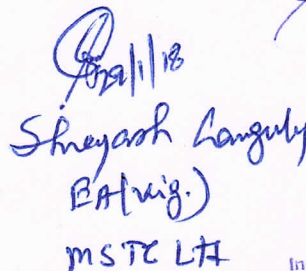 29/1/18
Shreyash Ganguly
EA(vig.)
MSTC Ltd